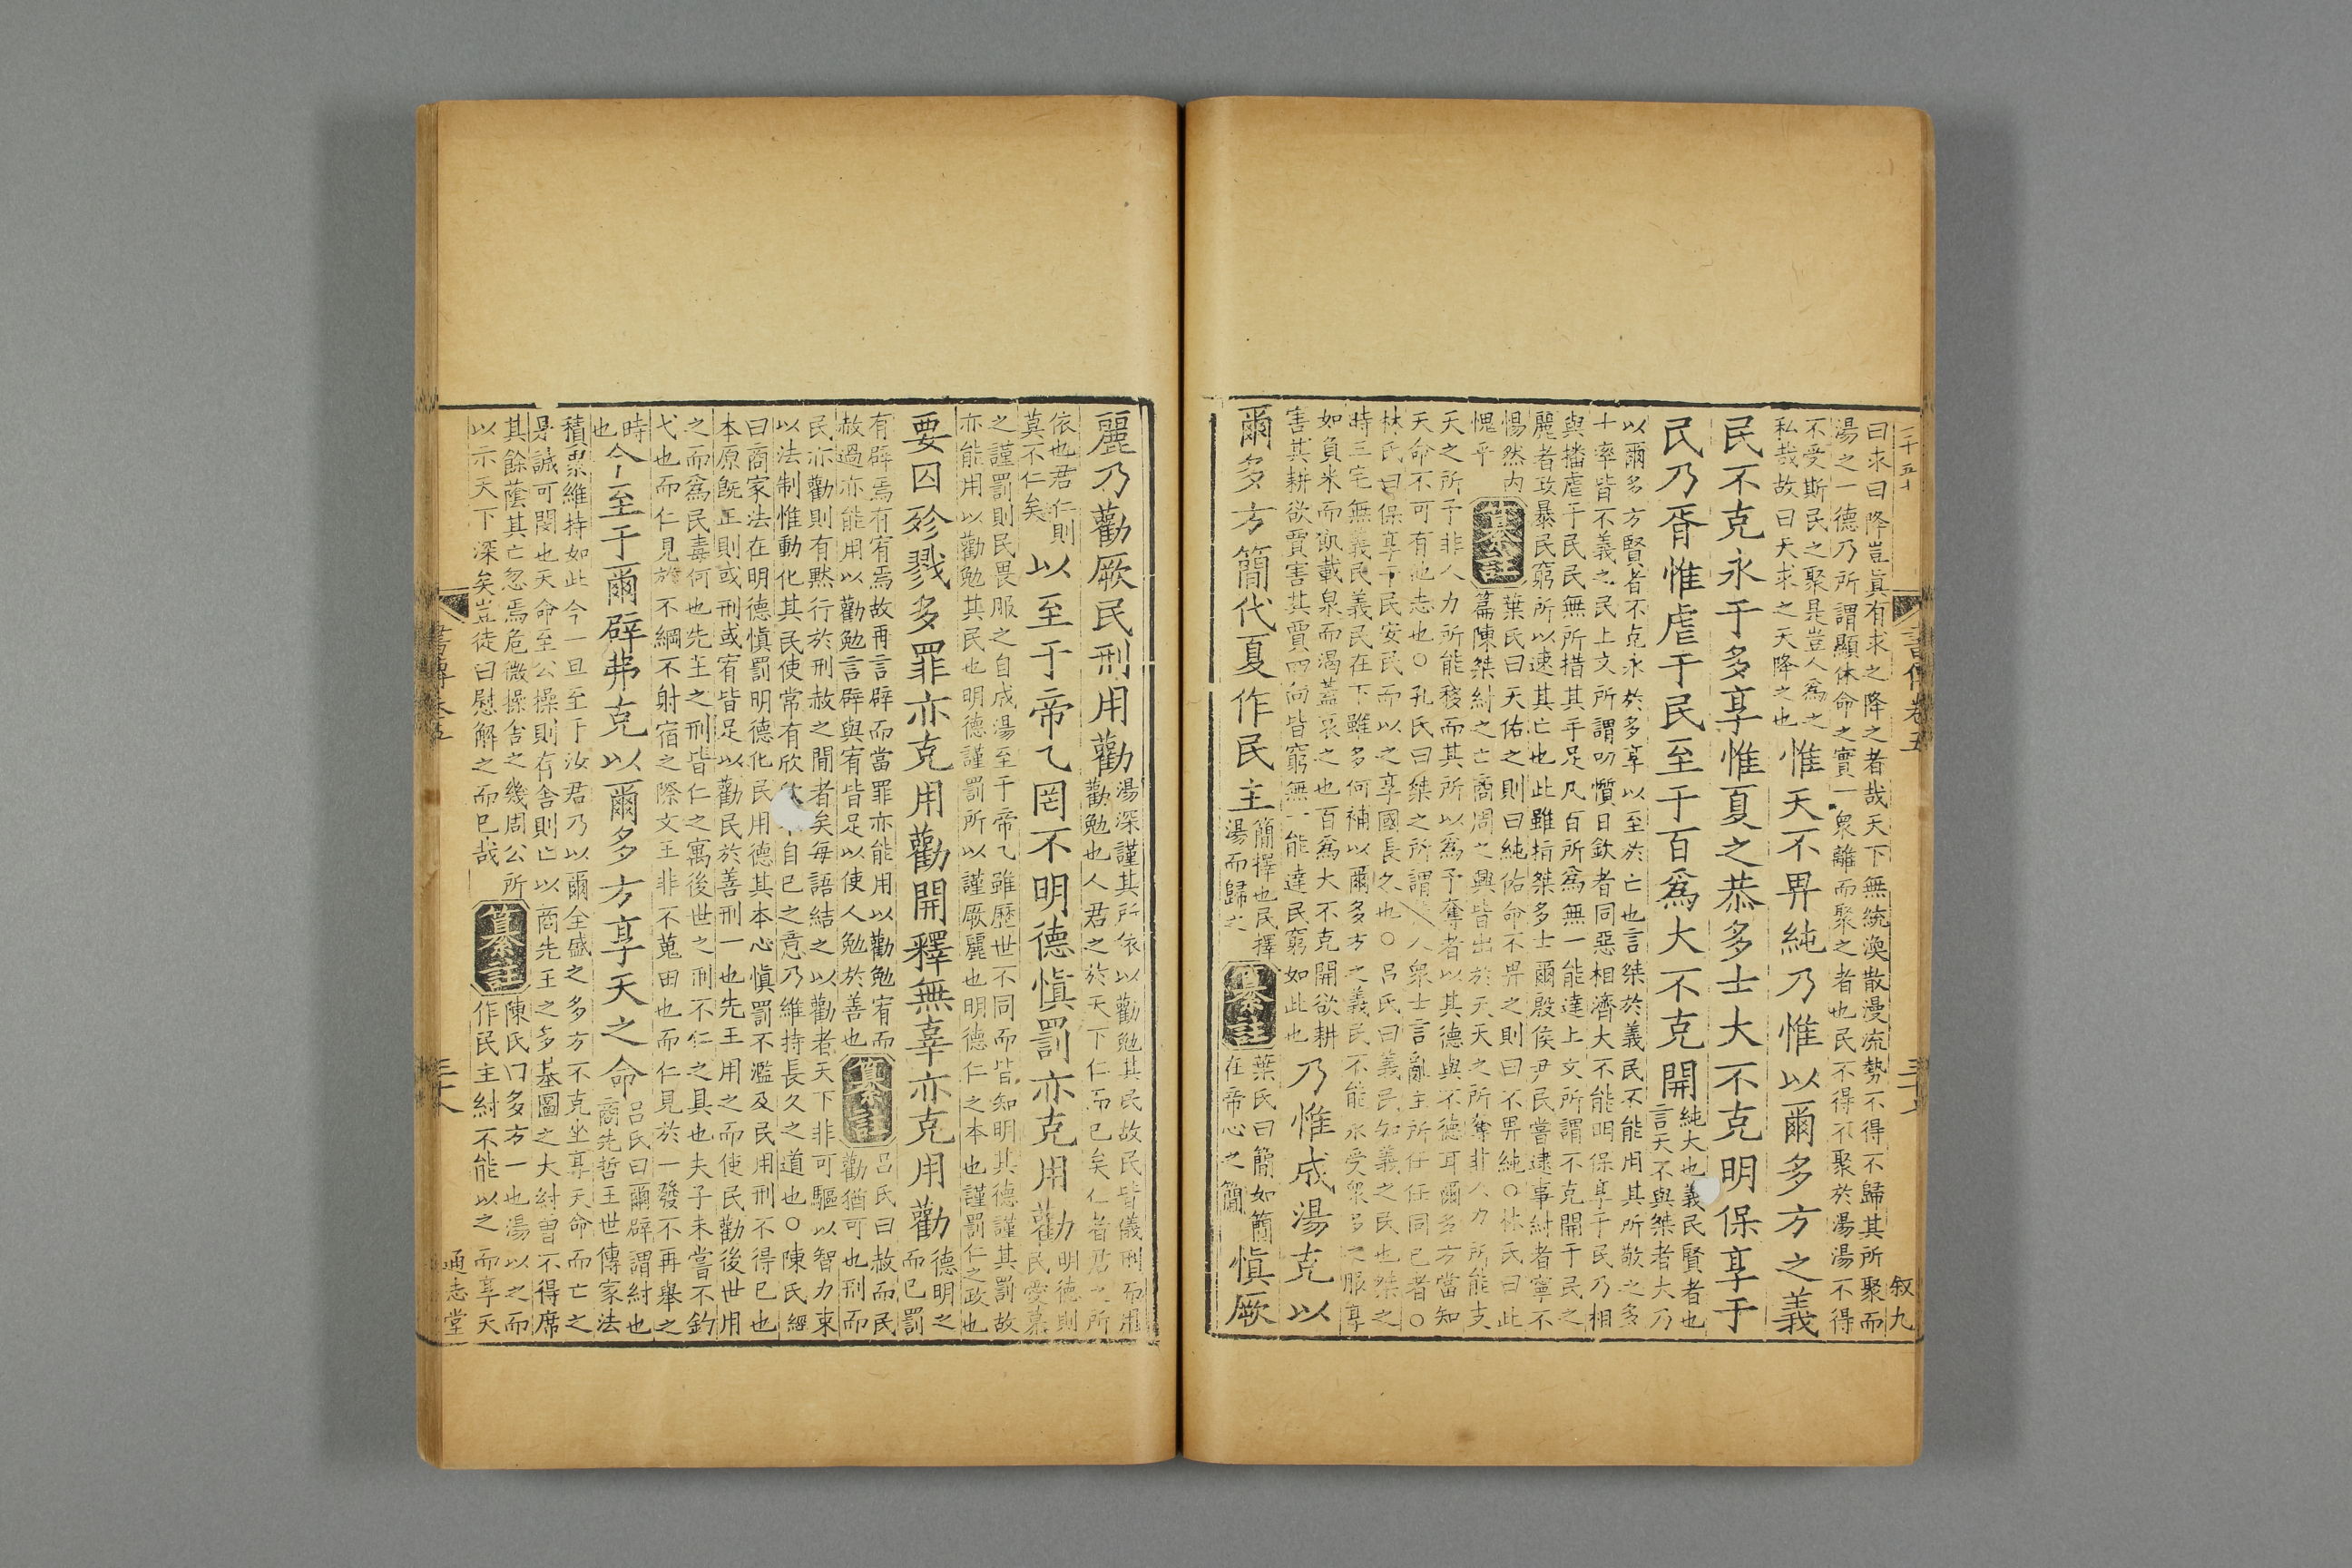 曰求曰降豈真有求之降之者哉天下無統渙散漫流勢不得不歸其所聚而
湯之一德乃所謂顯休命之實一衆離而聚之者也民不得不聚於湯湯不得
不受斯民之聚是豈人爲之
私哉故曰天求之天降之也
惟天不畀純乃惟以爾多方之義
民不克永于多享惟夏之恭多士大不克明保享于
民乃胥惟虐于民至于百爲大不克開
純大也義民賢者也
言天不與桀者大乃
以爾多方賢者不克永於多享以至於亡也言桀於義民不能用其所敬之多
士率皆不義之民上文所謂叨懫日欽者同惡相濟大不能明保享于民乃相
與播虐于民民無所措其手足凡百所爲無一能達上文所謂不克開于民之
麗者政暴民窮所以速其亡也此雖指桀多士爾殷侯尹民嘗逮事紂者寧不
惕然内
愧乎
纂註
葉氏曰天佑之則曰純佑命不畀之則曰不畀純○林氏曰此
篇陳桀紂之亡商周之興皆出於天天之所奪非人力所能支
天之所予非人力所能移而其所以爲予奪者以其德與不德耳爾多方當知
天命不可有他志也○孔氏曰桀之所謂 人衆士言亂主所任任同已者○
林氏曰保享于民安民而以之享國長久也○呂氏曰義民知義之民也桀之
時三宅無義民義民在下雖多何補以爾多方之義民不能永受衆多之服享
如負米而飢載泉而渴蓋哀之也百爲大不克開欲耕
害其耕欲賈害其賈四向皆窮無一能達民窮如此也
乃惟成湯克以
爾多方簡代夏作民主
簡擇也民擇
湯而歸之
纂註
葉氏曰簡如簡
在帝心之簡
愼厥
麗乃勸厥民刑用勸
湯深謹其所依以勸勉其民故民皆儀刑而用
勸勉也人君之於天下仁而已矣仁者君之所
依也君仁則
莫不仁矣
以至于帝乙罔不明德愼罰亦克用勸
明德則
民愛慕
之謹罰則民畏服之自成湯至于帝乙雖歷世不同而皆知明其德謹其罰故
亦能用以勸勉其民也明德謹罰所以謹厥麗也明德仁之本也謹罰仁之政也
要囚殄戮多罪亦克用勸開釋無辜亦克用勸
德明之
而已罰
有辟焉有宥焉故再言辟而當罪亦能用以勸勉宥而
赦過亦能用以勸勉言辟與宥皆足以使人勉於善也
纂註
呂氏曰赦而民
勸猶可也刑而
民亦勸則有黙行於刑赦之間者矣每語結之以勸者天下非可驅以智力束
以法制惟動化其民使常有欣 自已之意乃維持長久之道也○陳氏經
曰商家法在明德愼罰明德化民用德其本心愼罰不濫及民用刑不得已也
本原旣正則或刑或宥皆足以勸民於善刑一也先王用之而使民勸後世用
之而爲民毒何也先王之刑皆仁之寓後世之刑不仁之具也夫子未嘗不釣
弋也而仁見於不綱不射宿之際文王非不蒐田也而仁見於一發不再舉之
時
也
今至于爾辟弗克以爾多方享天之命
呂氏曰爾辟謂紂也
商先哲王世傳家法
積累維持如此今一旦至于汝君乃以爾全盛之多方不克坐享天命而亡之
是誠可閔也天命至公操則存舍則亡以商先王之多基圖之大紂曽不得席
其餘蔭其亡忽焉危微操舍之幾周公所
以示天下深矣豈徒曰慰解之而已哉
纂註
陳氏曰多方一也湯以之而
作民主紂不能以之而享天
書傳卷五
通志堂